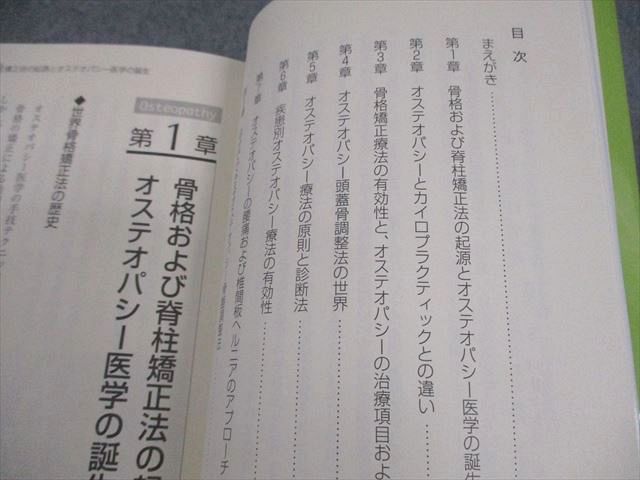 目次
まえがき
第1章 骨格および脊柱矯正法の起源とオステオパシー医学の誕生
第2章 オステオパシーとカイロプラクティックとの違い
第3章 骨格矯正療法の有効性と、オステオパシーの治療項目およ
第4章 オステオパシー頭蓋骨調整法の世界
第5章 オステオパシー療法の原則と診断法
第6章 疾患別オステオパシー療法の有効性
第7章 オステオパシーの腰痛および椎間板ヘルニアのアプローチ
矯正法の起源とオステオパシー医学の誕生
Osteopathy
第1章
骨格および脊柱矯正法の起
オステオパシー医学の誕生
◆世界骨格矯正法の歴史
オステオパシー医学の手技テクニ
骨格の矯正による治